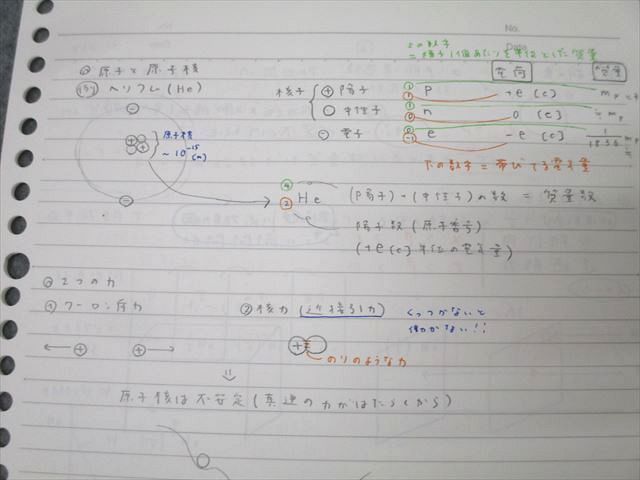 No.
Date
上の数字
= 核子1個あたりを単位とした質量
◎ 原子と原子核
電荷
(例) ヘリウム (He)
核子 { ⊕ 陽子 1 1 P +e [C] mp
○ 中性子 1 0 n 0 [C] ≒ mp
⊖ 電子 0 -1 e -e [C] 1/1836 mp
原子核
~10⁻¹⁵ (m)
下の数字 = 帯びてる電気量
4 2 He
(陽子)+(中性子)の数 = 質量数
陽子数 (原子番号)
(+e [C] 単位の電気量)
◎ 2つの力
① クーロン斥力
② 核力 (近接引力)
くっつかないと
働かない!!
のりのような力
原子核は不安定 (真逆の力がはたらくから)